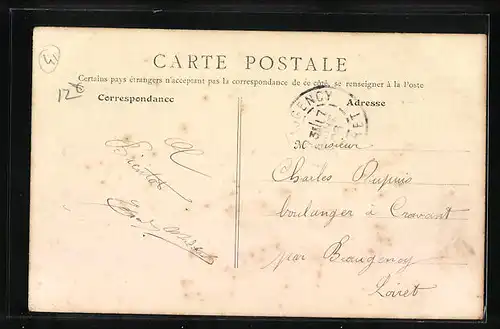 3
12
CARTE POSTALE
Certains pays étrangers n'acceptant pas la correspondance de ce côté, se renseigner à la Poste
Correspondance
Adresse
Monsieur
Charles Dupuis
boulanger à Cravant
par Beaugency
Loiret
A
Bientôt